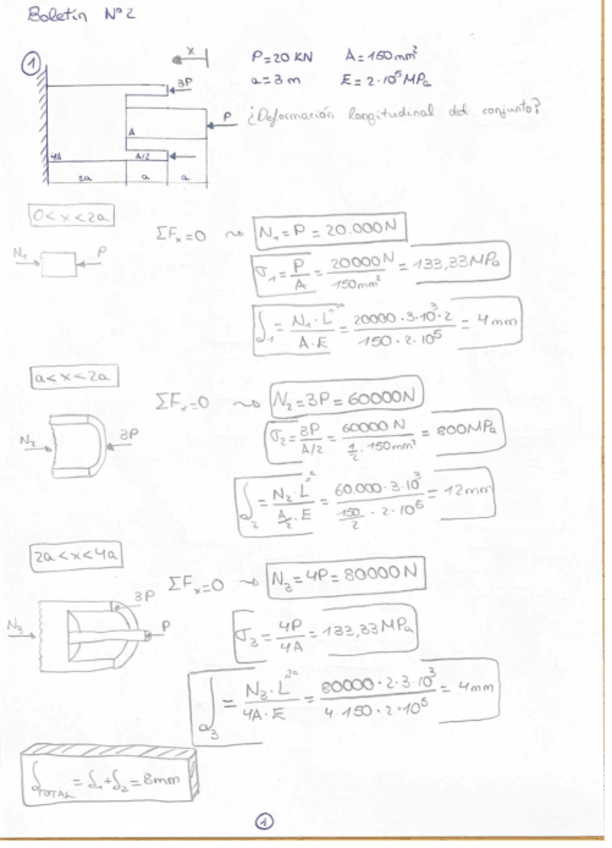 Boletín Nº 2
1
x
P = 20 KN A = 150 mm²
a = 3 m E = 2·10⁵ MPa
3P
P
¿Deformación longitudinal del conjunto?
A
4A A/2
2a a a
0<x<2a
N₁ P
ΣFₓ=0 ⇝ N₁ = P = 20.000N
σ₁ = P/A = 20000N/150mm² = 133,33MPa
δ₁ = N₁·L²ᵃ/A·E = 20000·3·10³·2/150·2·10⁵ = 4mm
a<x<2a
N₂ 3P
ΣFₓ=0 ⇝ N₂=3P=60000N
σ₂ = 3P/A/2 = 60000 N/½·150mm² = 800MPa
δ₂ = N₂·L/A/2·E = 60.000·3·10³/150/2·2·10⁵ = 12mm
2a<x<4a
N₃ 3P P
ΣFₓ=0 ⇝ N₃=4P=80000N
σ₃ = 4P/4A = 133,33MPa
δ₃ = N₃·L²ᵃ/4A·E = 80000·2·3·10³/4·150·2·10⁵ = 4mm
δTOTAL = δ₁+δ₂ = 8mm
1